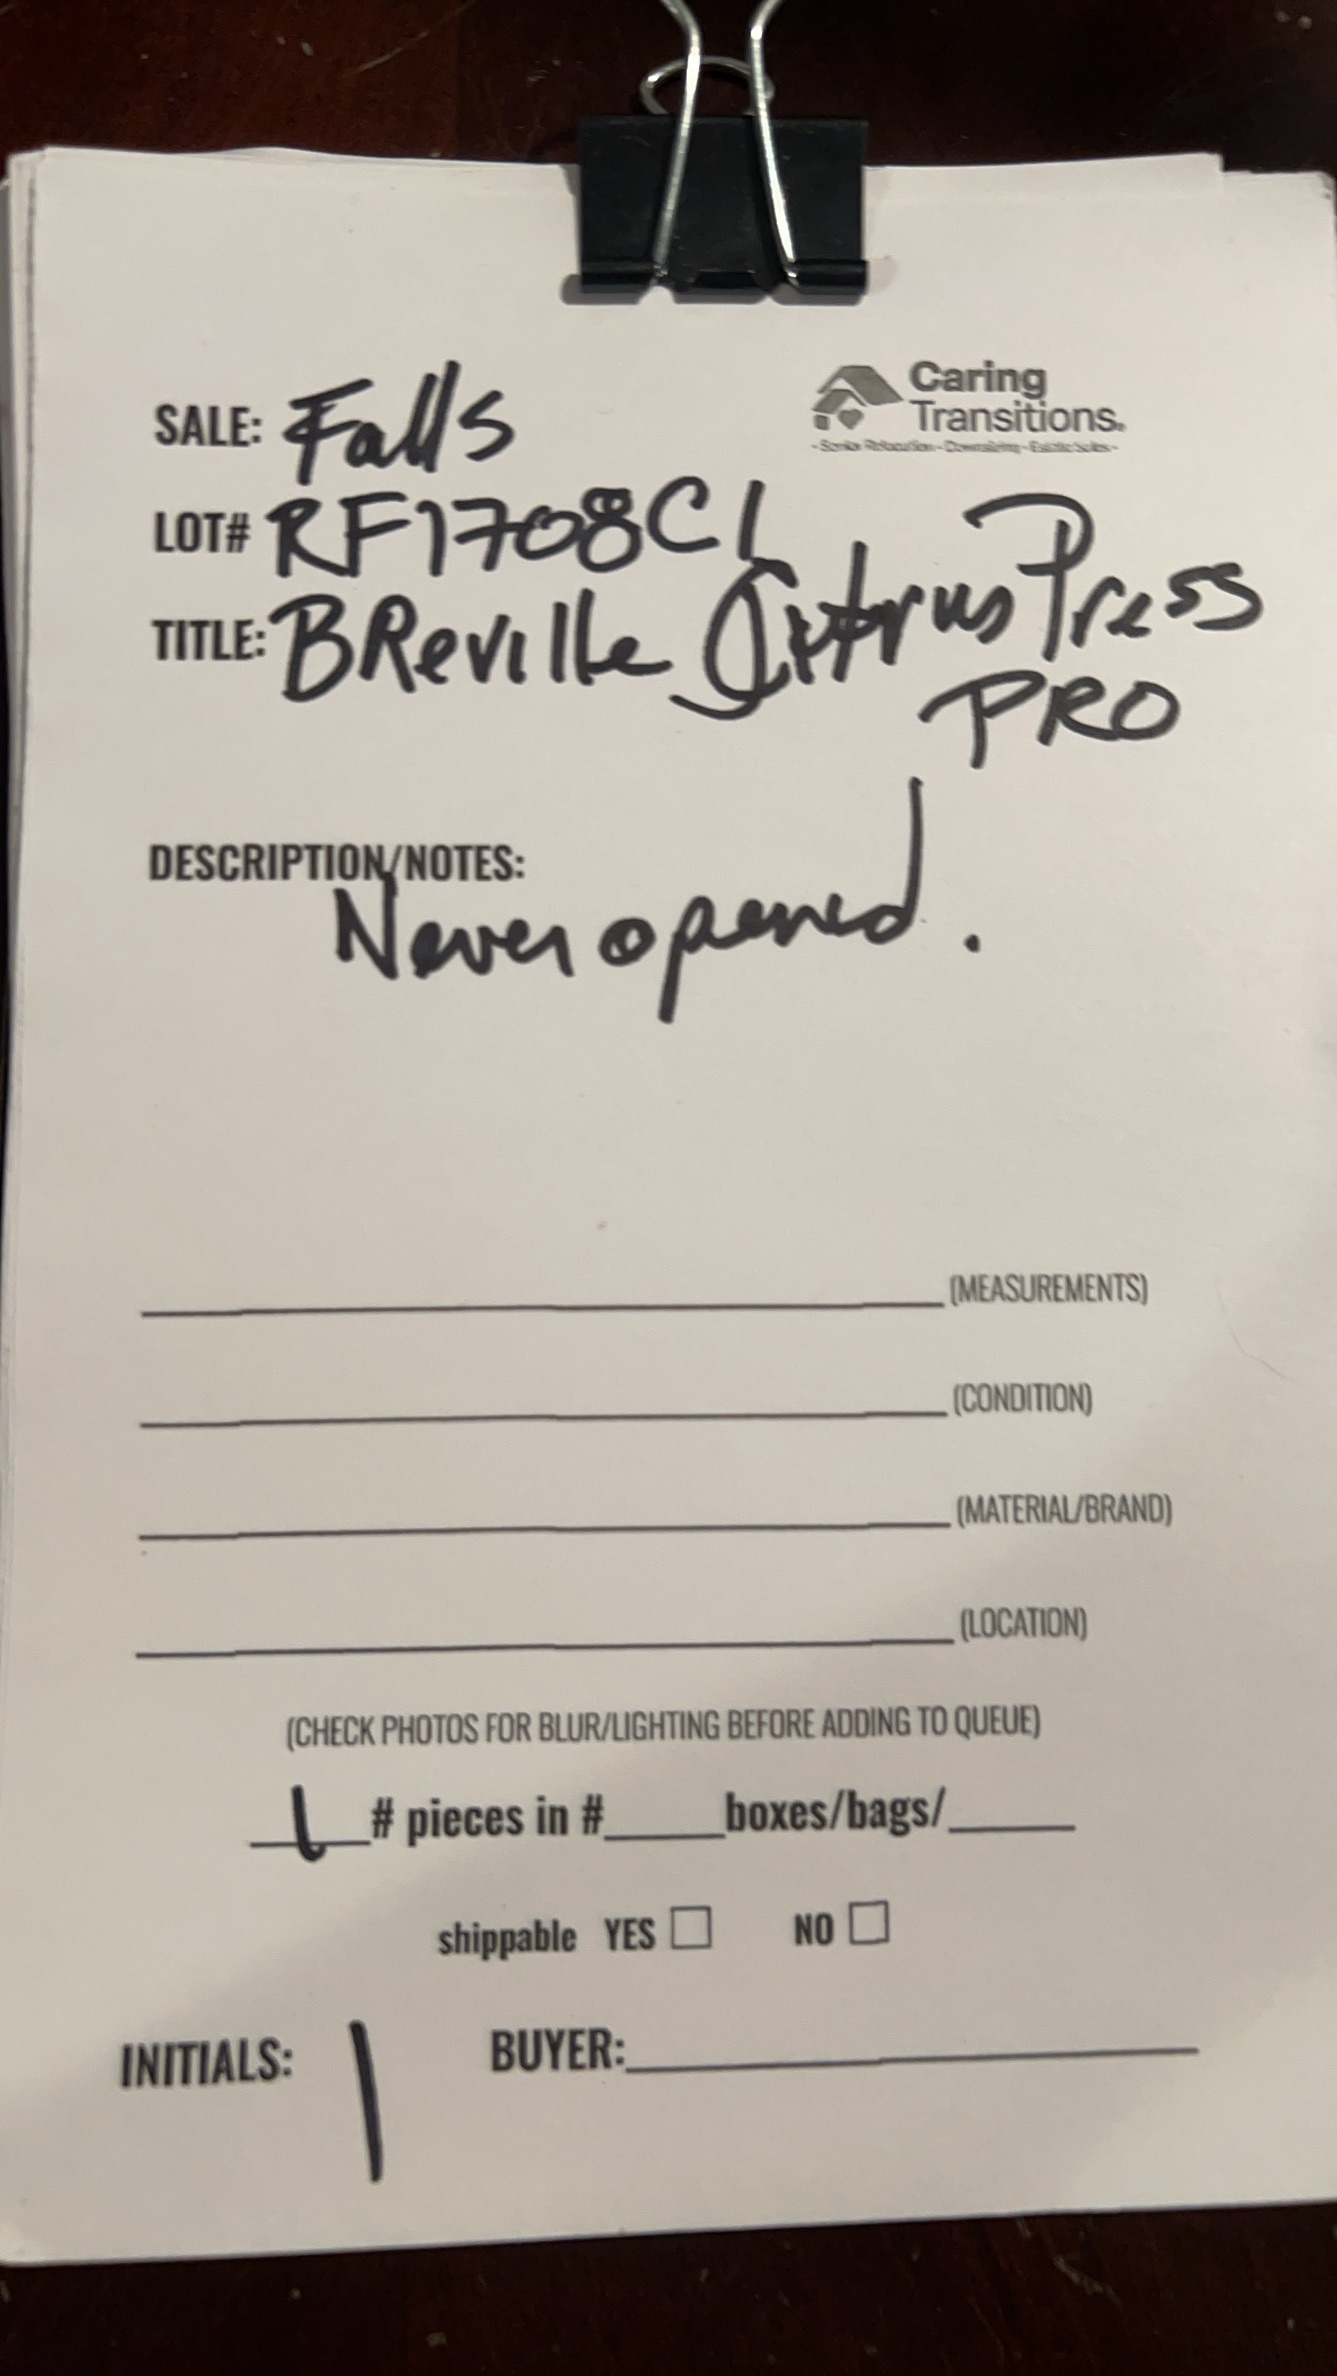 Caring
Transitions.
- Senior Relocation - Downsizing - Estate Sales -
SALE: Falls
LOT# RF1708CL
TITLE: BReville Citrus Press
PRO
DESCRIPTION/NOTES:
Never opened.
(MEASUREMENTS)
(CONDITION)
(MATERIAL/BRAND)
(LOCATION)
(CHECK PHOTOS FOR BLUR/LIGHTING BEFORE ADDING TO QUEUE)
1 # pieces in #_____boxes/bags/_____
shippable YES ☐ NO ☐
INITIALS: | BUYER: